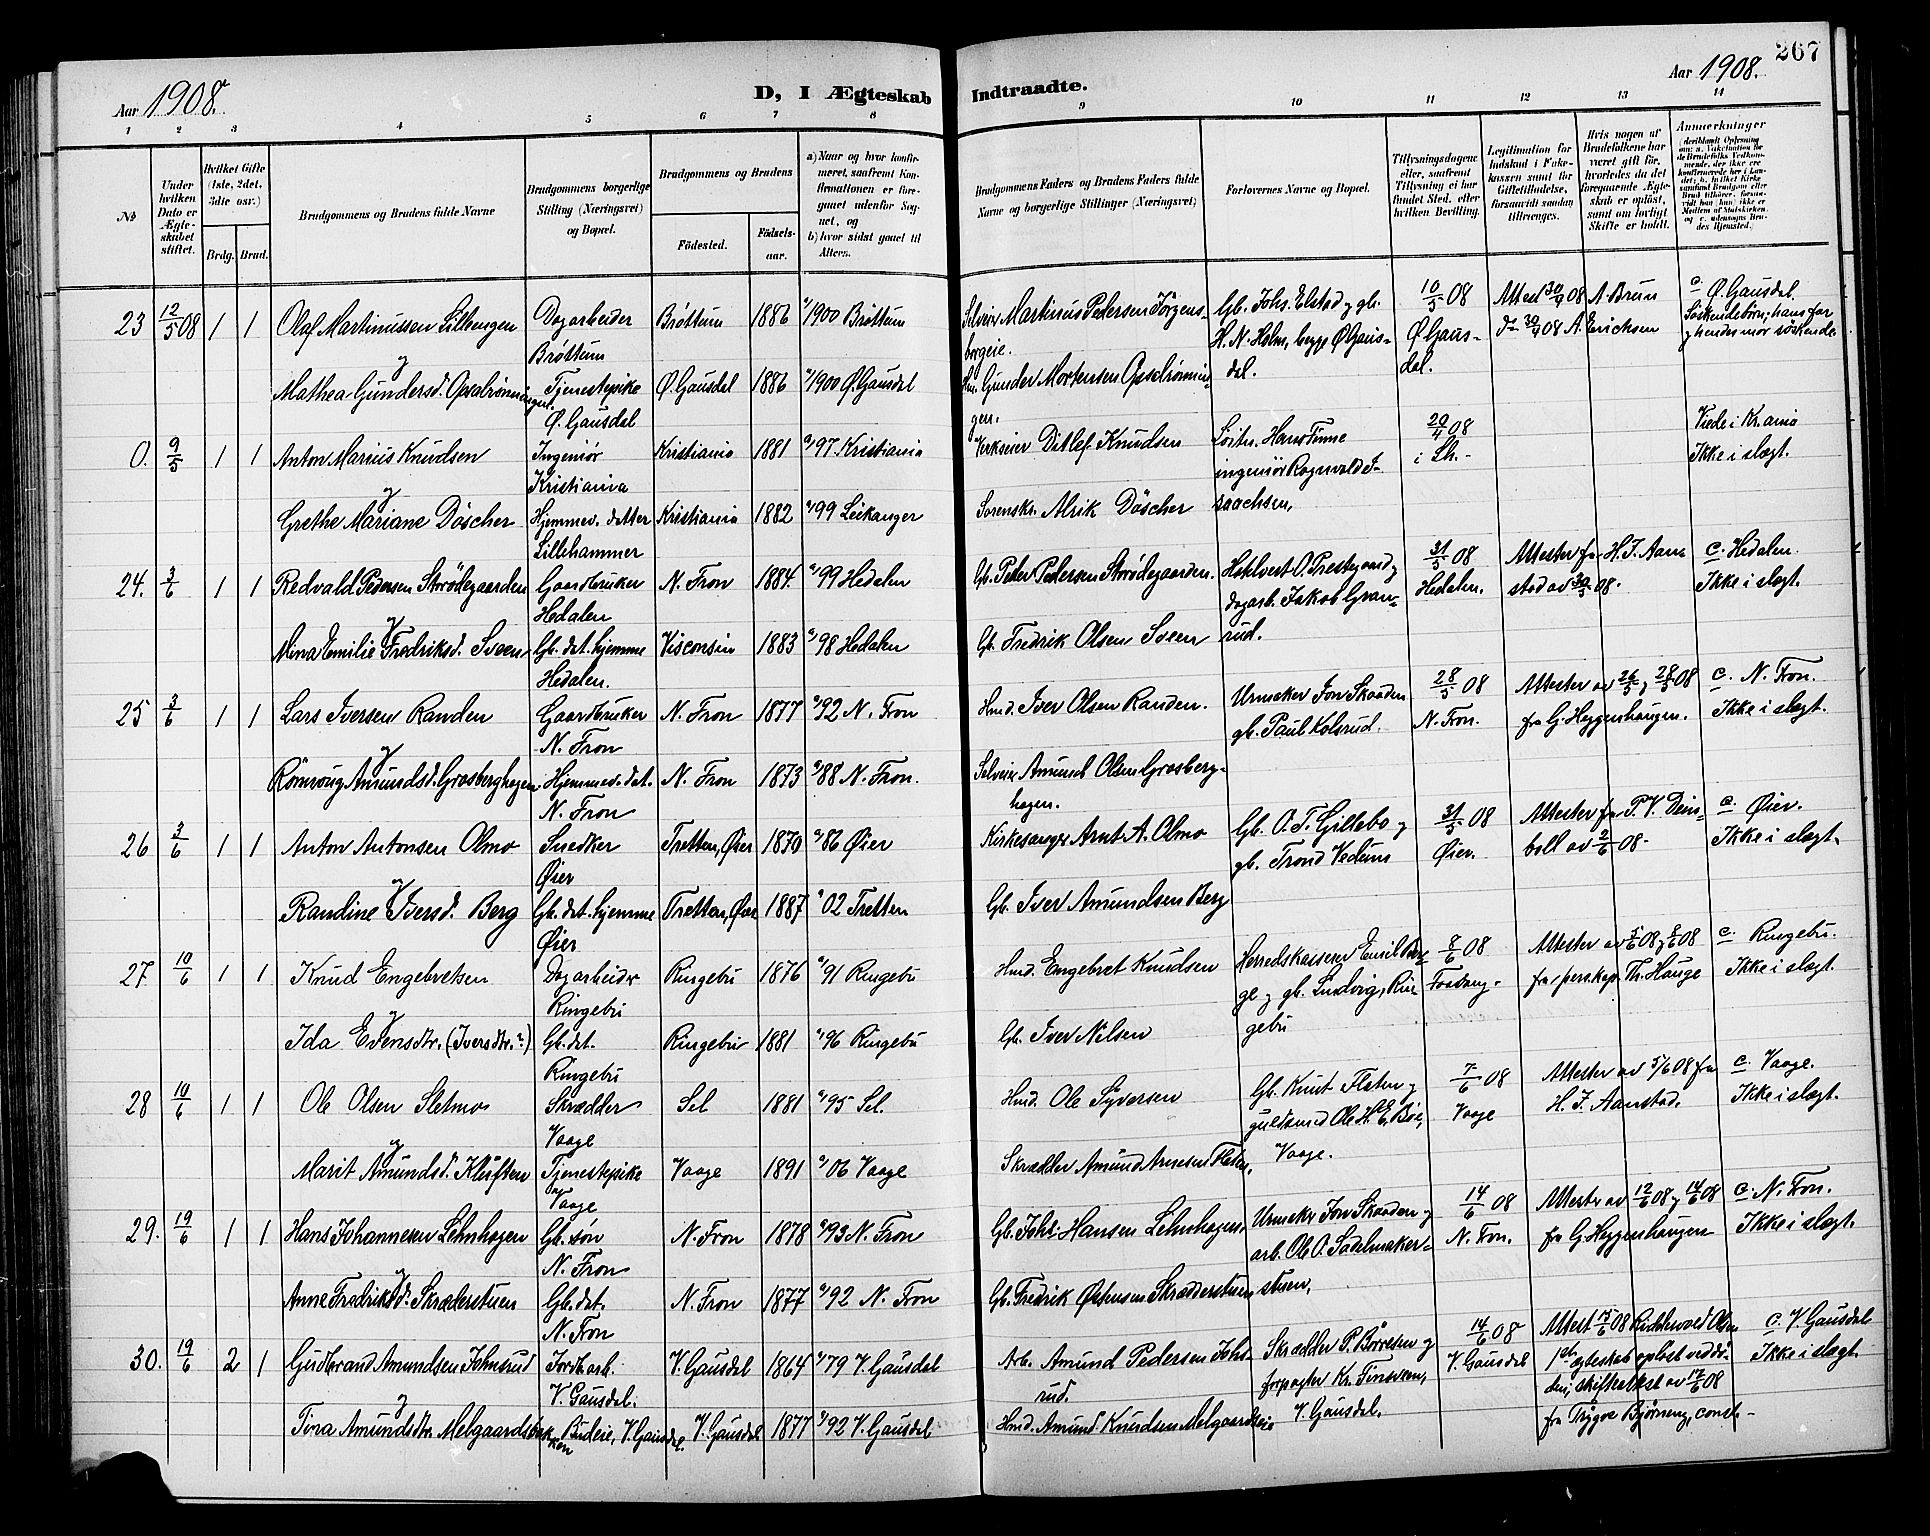 Aar 1908.
D, I Ægteskab
1 2 3 4 5 6 7 8
No
Under hvilken Dato er Ægteskabet stiftet.
Hvilket Gifte (1ste, 2det, 3die osv.)
Brdg. Brud.
Brudgommens og Brudens fulde Navne
Brudgommens borgerlige Stilling (Næringsvei) og Bopæl.
Brudgommens og Brudens
Födested.
Födselsaar.
a) Naar og hvor konfirmeret, saafremt Konfirmationen er foregaaet udenfor Sognet, og
b) hvor sidst gaaet til Alters.
23 12/5 08 1 1 Olaf Martinussen Lillengen Dagarbeider Brøttum 1886 1900 Brøttum
y Brøttum
Mathea Gundersd. Opsalrønningen Tjenestepike Ø. Gausdal 1886 1900 Ø. Gausdal
Ø. Gausdal
0. 9/5 1 1 Anton Marius Knudsen Ingeniør Kristiania 1881 97 Kristiania
y Kristiania
Grethe Mariane Döscher Hjemmev. datter Kristiania 1882 99 Leikanger
Lillehammer
24. 3/6 1 1 Redvald Pedersen Strødegaarden Gaardbruker N. Fron 1884 99 Hedalen
y Hedalen
Mina Emilie Fredriksd. Sveen Gb. dat. hjemme Visconsin 1883 98 Hedalen
Hedalen.
25 3/6 1 1 Lars Iversen Randen Gaardbruker N. Fron 1877 92 N. Fron
y N. Fron
Rönnoug Amundsd. Grosberghagen Hjemmev. dat. N. Fron 1873 88 N. Fron.
N. Fron
26 3/6 1 1 Anton Antonsen Olmo Snedker Tretten, Øier 1870 86 Øier
y Øier
Randine Iversd. Berg Gb. dat. hjemme Tretten, Øier 1887 02 Tretten
Øier
27 10/6 1 1 Knud Engebretsen Dagarbeider Ringebu 1876 91 Ringebu
y Ringebu
Ida Evensdtr. (Iversdtr.?) Gb. dat. Ringebu 1881 96 Ringebu
Ringebu
28 10/6 1 1 Ole Olsen Sletmo Skrædder Sel 1881 95 Sel.
y Vaage
Marit Amundsd. Kluften Tjenestepike Vaage 1891 06 Vaage
Vaage
29. 19/6 1 1 Hans Johannesen Lehnhagen Gb. søn N. Fron 1878 93 N. Fron
y N. Fron
Anne Fredriksd. Skrædderstuen Gb. dat. N. Fron 1877 92 N. Fron
N. Fron
30. 19/6 2 1 Gudbrand Amundsen Johnsrud Jordarb. V. Gausdal 1864 79 V. Gausdal
y V. Gausdal.
Tina Amundsdtr. Melgaardsbakken Budeie, V. Gausdal. V. Gausdal 1877 92 V. Gausdal
267
Aar 1908.
Indtraadte.
9 10 11 12 13 14
Brudgommens Faders og Brudens Faders fulde Navne og borgerlige Stillinger (Næringsvei)
Forlovernes Navne og Bopæl.
Tillysningsdagene eller, saafremt Tillysning ei har fundet Sted, efter hvilken Bevilling.
Legitimation for Indskud i Enkekassen samt for Giftetilladelse, forsaavidt saadan tiltrænges.
Hvis nogen af Brudefolkene har været gift før, hvorledes da det foregaaende Ægteskab er opløst, samt om lovligt Skifte er holdt.
Anmærkninger
Selveier Martinus Pedersen Jörgens- Gb. Johs. Elstad y gb. 10/5 08 Attest 30/4 08 A. Brun c Ø. Gausdal.
borgeie. H. N. Holm, begge Ø. Gaus- Ø. Gaus- 30/4 08 A. Erichsen Söskendebörn; hans far
Gunder Mortensen Opsalrønnin- dal. dal. y hendes mor söskende
gen.
Verkseier Ditlef Knudsen Hans Finne 29/4 08 Viede i Kr.ania
ingeniör Ragnvald I- i Lh. Ikke i slægt.
Sorenskr. Alrik Döscher saachsen,
Gb. Peder Pedersen Strødegaarden. O. Prestegaard y 31/5 08 Attester fra H. J. Aan- c. Hedalen.
dagarb. Jakob Gran- Hedalen. stad av 30/5 08. Ikke i slægt.
Gb. Fredrik Olsen Sveen rud.
Hmd. Iver Olsen Randen. Urmaker Jon Skaaden 28/5 08 Attester av 26/5 y 28/5 08 c. N. Fron.
gb. Paul Kolsrud. N. Fron. fra G. Heggenhaugen. Ikke i slægt.
Selveier Amund Olsen Grosberg-
hagen.
Kirkesanger Arnt A. Olmo Gb. O. T. Gillebo y 31/5 08 Attester fra P. V. Deins- c Øier.
gb. Trond Vedum Øier. boll av 2/6 08. Ikke i slægt.
Gb. Iver Amundsen Berg
Hmd. Engebret Knudsen Herredskasserer Emil Ber- 8/6 08 Attester av 5/6 08 y 8/6 08 c. Ringebu.
ge y gb. Ludvig, Rin- Faavang. fra pers.kap. Th. Hauge Ikke i slægt.
Gb. Iver Nilsen gebu
Hmd. Ole Syversen Gb. Knut Flaten y 7/6 08 Attester av 5/6 08 fra c. Vaage.
guldsmed Ole H. Bøe, Vaage H. J. Aanstad. Ikke i slægt.
Skrædder Amund Arnesen Flaten, Vaage.
Gb. Johs. Hansen Lehnhagen Urmaker Jon Skaaden y 14/6 08 Attester av 12/6 08 y 14/6 08 c. N. Fron.
arb. Ole O. Sadelmaker- N. Fron. fra G. Heggenhaugen Ikke i slægt.
Gb. Fredrik Østensen Skrædderstuen stuen,
Arb. Amund Pedersen Johs- Skrædder P. Børresen y 14/6 08 Attest 17/6 08 Riddervold Olsen c. V. Gausdal
rud. forpagter Kr. Finsveen, V. Gausdal 1ste ægteskab opløst ved dö- Ikke i slægt.
den; skifteattest av 17/6 08
Hmd. Amund Knudsen Melgaardseie V. Gausdal. fra Trygve Bjørneng, const.